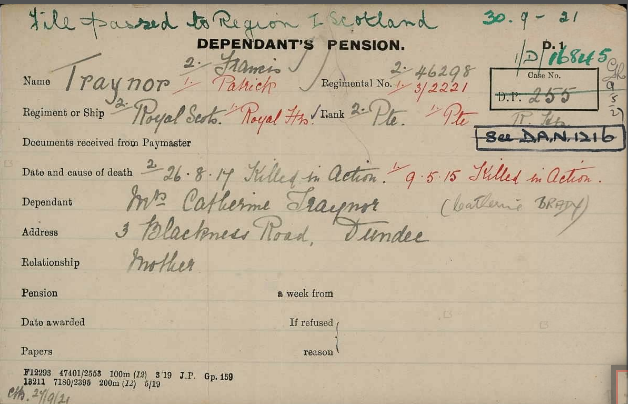 File passed to Region I Scotland 30.9-21
DEPENDANT'S PENSION. D.1
1/D/16845
Name Traynor 2. Francis 1. Patrick Regimental No. 2. 46298 1. 3/2221
Case No.
D.P. 255
Regiment or Ship 2. Royal Scots. 1. Royal Hrs. Rank 2. Pte. 1. Pte
See D.A.N. 1216
Documents received from Paymaster
Date and cause of death 2. 26.8.17 Killed in Action. 1. 9.5.15 Killed in Action.
Dependant Mrs Catherine Traynor (Catherine BRADY)
Address 3 Blackness Road, Dundee
Relationship Mother
Pension a week from
Date awarded If refused
Papers reason
F12293 47401/2553 100m (12) 3 19 J.P. Gp. 159
13211 7180/2395 200m (12) 5/19
27/9/21